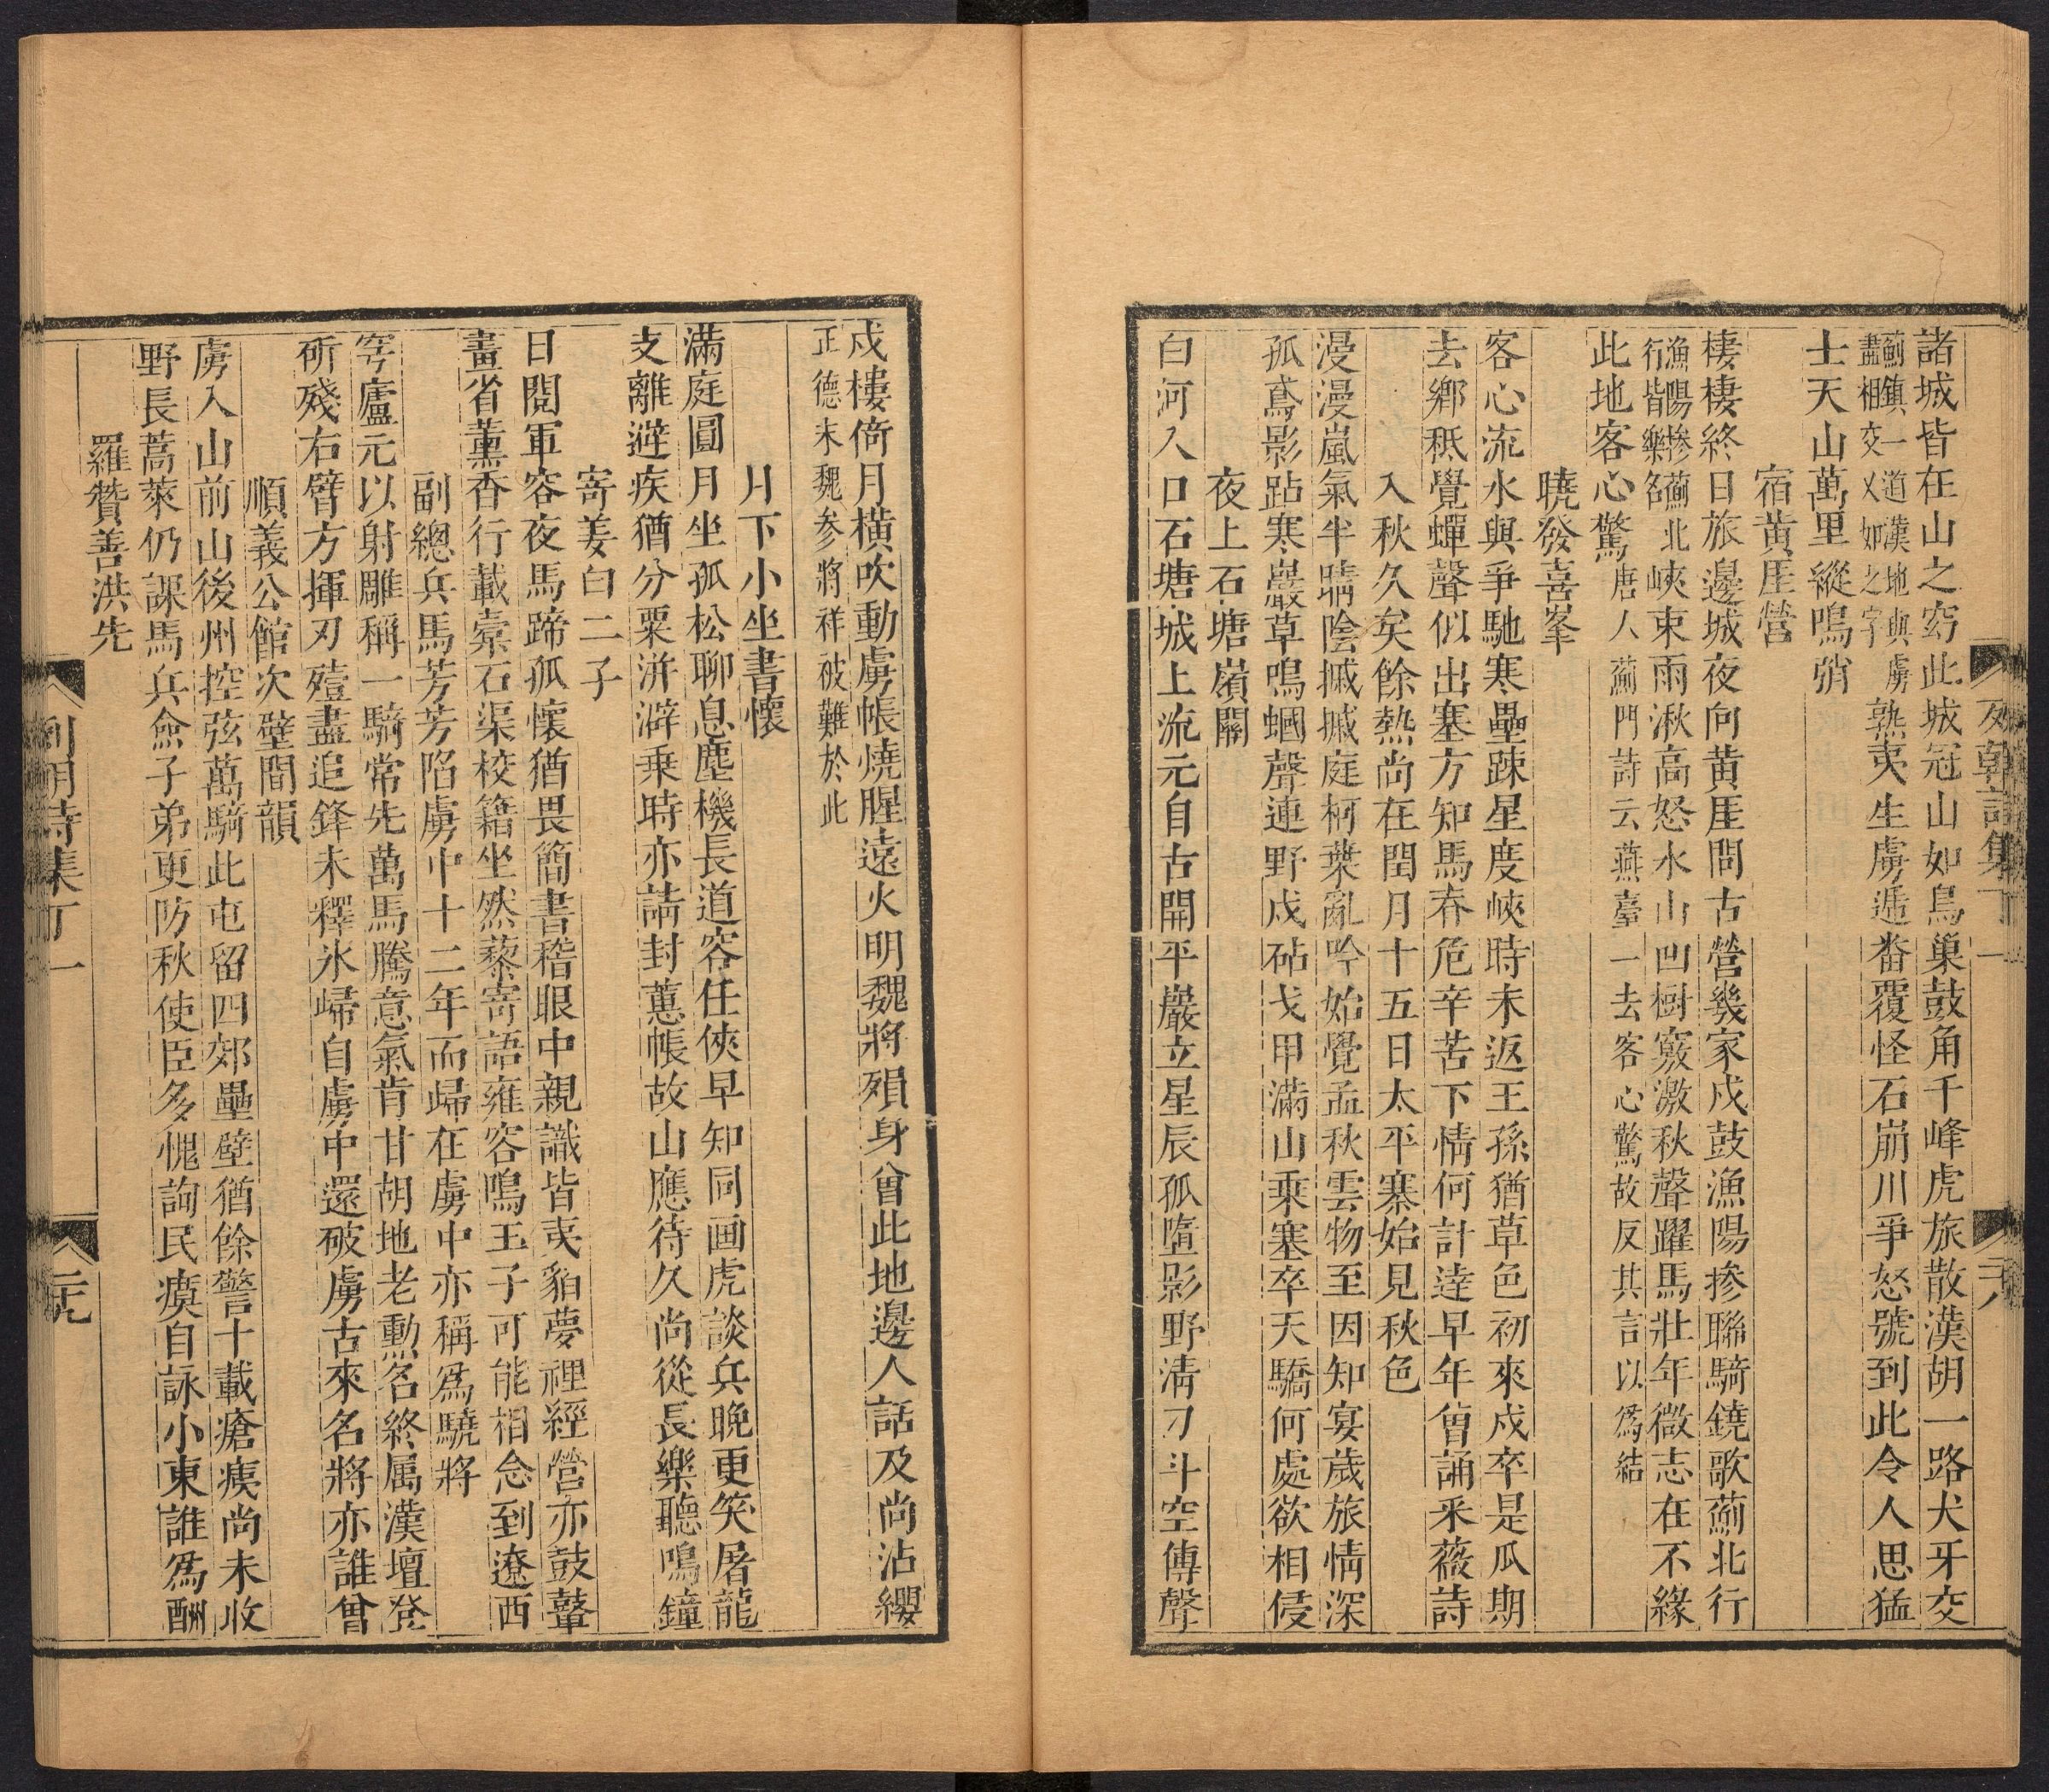 諸城皆在山之穷此城冠山如鳥巢鼓角千峰虎旅散漢胡一路犬牙交
薊鎮一道漢地與虜
盡相交乂如之字
熟夷生虜遞畨覆怪石崩川爭怒號到此令人思猛
士天山萬里縱鳴弰
宿黃厓營
棲棲終日旅邊城夜向黃厓問古營幾家戍鼓漁陽摻聯騎鐃歌薊北行
漁陽摻薊北
行皆樂名
峽束雨湫高怒水山凹樹竅激秋聲躍馬壯年微志在不緣
此地客心驚唐人薊門詩云燕臺一去客心驚故反其言以爲結
曉發喜峯
客心流水與爭馳寒壘踈星度峽時未返王孫猶草色初來戍卒是瓜期
去鄉秪覺蟬聲似出塞方知馬春危辛苦下情何計逹早年曾誦采薇詩
入秋久矣餘熱尚在閏月十五日太平寨始見秋色
漫漫嵐氣半晴陰摵摵庭柯葉亂吟始覺孟秋雲物至因知宴歲旅情深
孤鳶影跕寒巖草鳴蟈聲連野戍砧戈甲滿山乘塞卒天驕何處欲相侵
夜上石塘嶺關
白河入口石塘城上流元自古開平巖立星辰孤墮影野清刀斗空傳聲
戍樓倚月橫吹動虜帳燒腥遠火明魏將殞身曾此地邊人話及尚沾纓
正德末魏參將祥被難於此
月下小坐書懷
滿庭圓月坐孤松聊息塵機長道容任俠早知同画虎談兵晚更笑屠龍
支離遊疾猶分粟洴澼乗時亦請封蕙帳故山應待久尚從長樂聽鳴鐘
寄姜白二子
日閱軍容夜馬蹄孤懷猶畏簡書稽眼中親識皆夷貊夢裡經營亦鼓鼙
畫省薰香行載橐石渠校籍坐然藜寄語雍容鳴玉子可能相念到遼西
副總兵馬芳芳陷虜中十二年而歸在虜中亦稱爲驍將
穹廬元以射雕稱一騎常先萬馬騰意氣肯甘胡地老勳名終属漢壇登
斫殘右臂方揮刃殪盡追鋒未釋氷歸自虜中還破虜古來名將亦誰曾
順義公館次壁間韻
虜入山前山後州控弦萬騎此屯留四郊壘壁猶餘警十載瘡痍尚未收
野長蒿萊仍課馬兵僉子弟更防秋使臣多愧詢民瘼自詠小東誰爲酬
羅贊善洪先
列朝詩集丁一
二十九